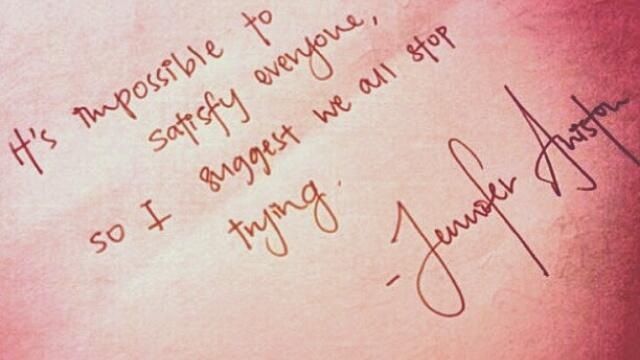 It's impossible to
satisfy everyone,
so I suggest we all stop
trying.
- Jennifer Aniston